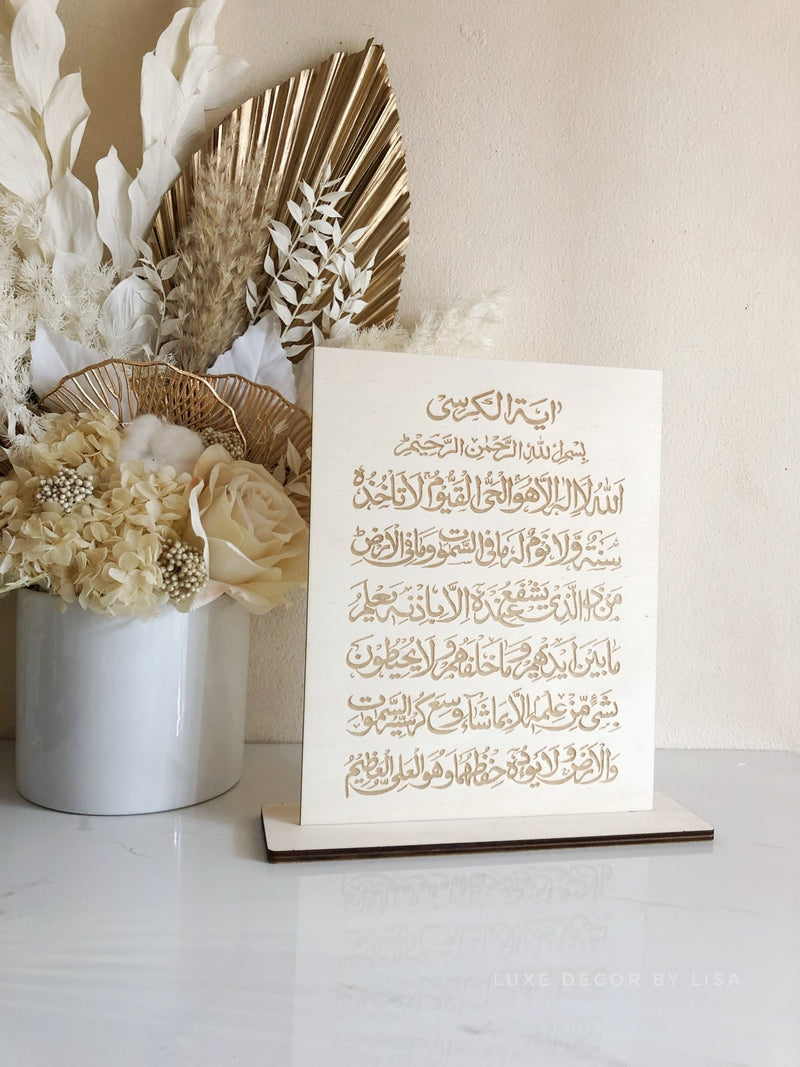 اية الكرسى
بسم الله الرحمن الرحيم
الله لا اله الا هو الحي القيوم لا تاخذه
سنة ولا نوم له ما في السموت وما في الارض
من ذا الذي يشفع عنده الا باذنه يعلم
ما بين ايديهم وما خلفهم ولا يحيطون
بشيء من علمه الا بما شاء وسع كرسيه السموت
والارض ولا يوده حفظهما وهو العلي العظيم
LUXE DECOR BY LISA